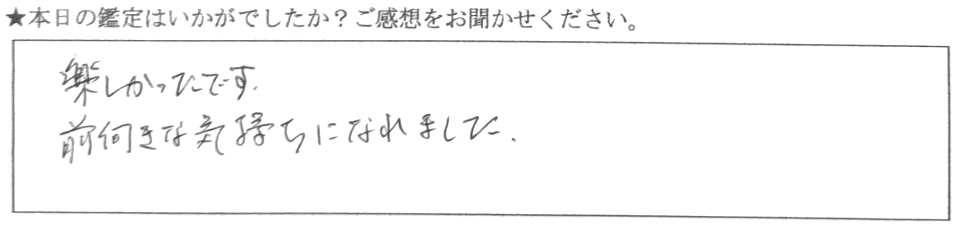 ★本日の鑑定はいかがでしたか？ご感想をお聞かせください。
楽しかったです.
前向きな気持ちになれました.